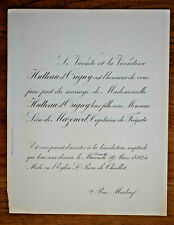 Le Vicomte et la Vicomtesse
Hulteau d'Origny ont l'honneur de vous
faire part du mariage de Mademoiselle
Hulteau d'Origny leur fille avec Monsieur
Léon de Mazenod, Capitaine de Frégate
Et vous prient d'assister à la bénédiction nuptiale
qui leur sera donnée le Mercredi 19 Mars
Midi en l'Eglise St Pierre de Chaillot
Rue